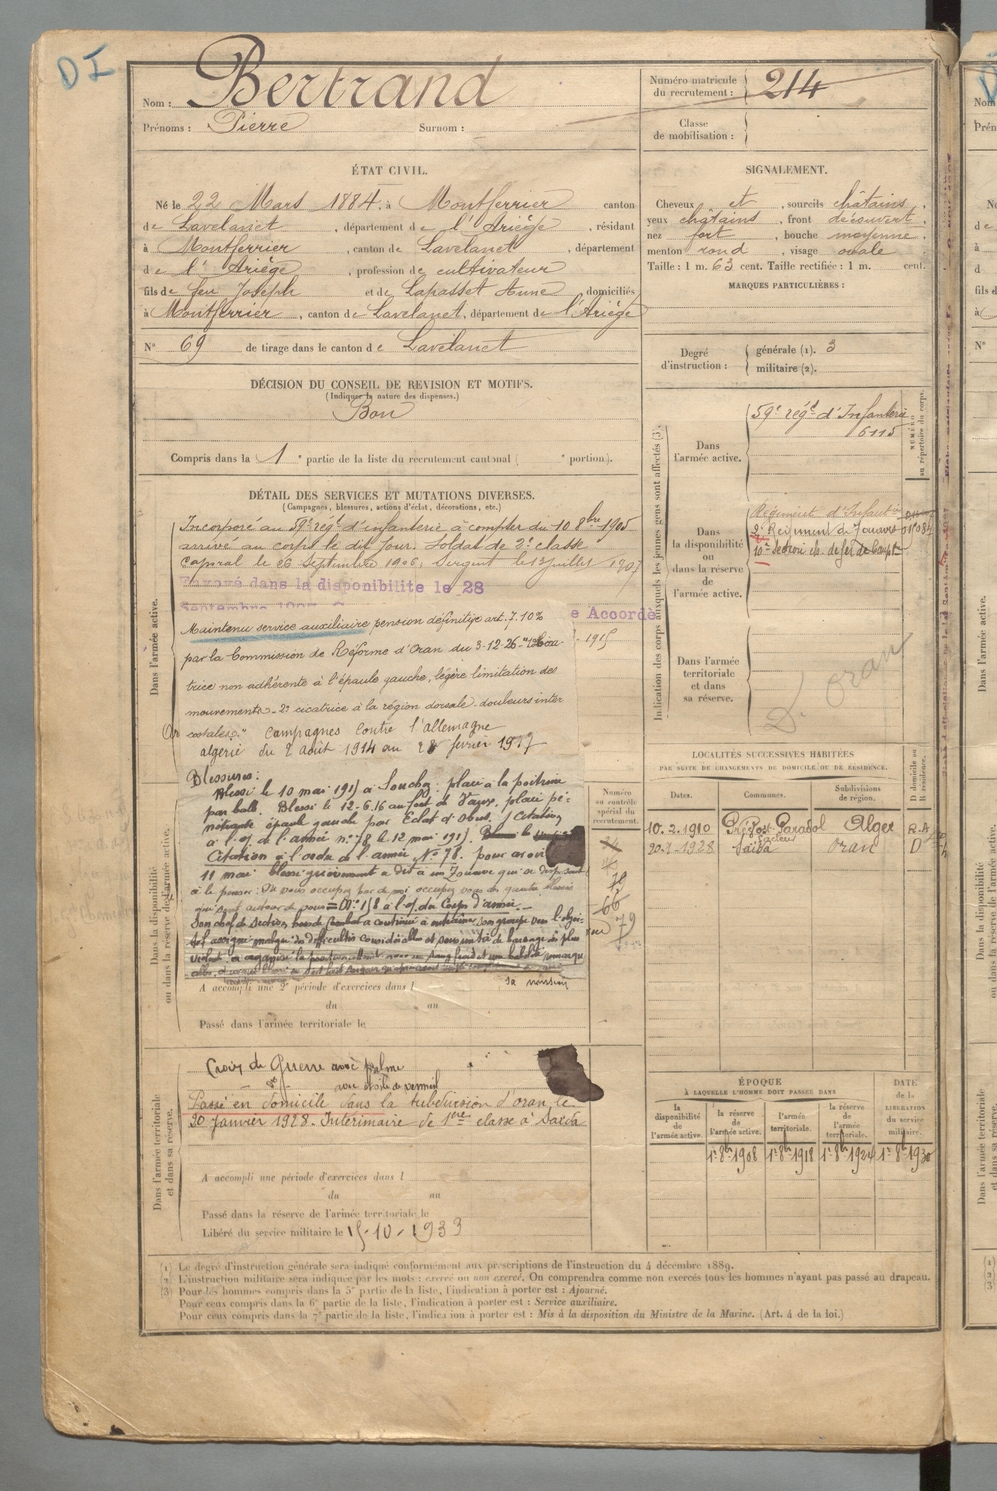 D I
Nom : Bertrand
Prénoms : Pierre Surnom :
Numéro matricule
du recrutement : 214
Classe
de mobilisation :
ÉTAT CIVIL.
Né le 22 Mars 1884, à Montferrier canton
de Lavelanet , département de l'Ariège , résidant
à Montferrier , canton de Lavelanet , département
de l'Ariège , profession de cultivateur
fils de feu Joseph et de Lapasset Anne , domiciliés
à Montferrier , canton de Lavelanet, département de l'Ariège
N° 69 de tirage dans le canton de Lavelanet
SIGNALEMENT.
Cheveux et , sourcils châtains ,
yeux châtains , front découvert ,
nez fort , bouche moyenne ,
menton rond , visage ovale
Taille : 1 m. 63 cent. Taille rectifiée : 1 m. cent.
MARQUES PARTICULIÈRES :
Degré
d'instruction :
générale (1). 3
militaire (2).
DÉCISION DU CONSEIL DE REVISION ET MOTIFS.
(Indiquer la nature des dispenses.)
Bon
Compris dans la 1 e partie de la liste du recrutement cantonal ( e portion).
Indication des corps auxquels les jeunes gens sont affectés (3).
Dans
l'armée active.
59e régt d'Infanterie
6115
NUMÉRO
au répertoire du corps.
Dans
la disponibilité
ou
dans la réserve
de
l'armée active.
Régiment d'Infant
2e Régiment de Zouaves
10e Section ch. de fer de
Dans l'armée
territoriale
et dans
sa réserve.
Oran
DÉTAIL DES SERVICES ET MUTATIONS DIVERSES.
(Campagnes, blessures, actions d'éclat, décorations, etc.)
Dans l'armée active.
Incorporé au 59e régt d'infanterie à compter du 10 8bre 1905
arrivé au corps le dit jour. Soldat de 2e classe
Caporal le 26 Septembre 1906, Sergent le 13 juillet 1907
Envoyé dans la disponibilité le 28
Septembre 1907.
e Accordé
1915
Maintenu service auxiliaire pension définitive art. 7. 10%
par la Commission de Réforme d'Oran du 3-12-26 "1° Cica-
trice non adhérente à l'épaule gauche, légère limitation des
mouvements. 2° cicatrice à la région dorsale douleurs inter-
costales." Campagnes contre l'allemagne
algerie du 2 août 1914 au 28 fevrier 1917
Blessures :
Blessé le 10 mai 1915 à Souchez plaie à la poitrine
par balle. Blessé le 12.6.16 au fort de Vaux, plaie pé-
nétrante épaule gauche par Eclat d'obus. Citation
à l'o. de l'armée n° 78 le 12 mai 1915.
Citation à l'ordre de l'armée N° 78. pour avoir
11 mai blessé grièvement a dit à un Zouave qui se disposait
à le panser : Ne vous occupez pas de moi occupez vous
O. 158 à l'o. du Corps d'armée.
Dans la disponibilité
ou dans la réserve de l'armée active.
Numéro
au contrôle
spécial du
recrutement.
78
66
79
A accompli une 2e période d'exercices dans l
sa mission
du au
Passé dans l'armée territoriale le
LOCALITÉS SUCCESSIVES HABITÉES
PAR SUITE DE CHANGEMENTS DE DOMICILE OU DE RÉSIDENCE.
Dates. Communes. Subdivisions de région. D domicile ou R résidence.
10.2.1910 Prévost-Paradol Alger R.A
facteur
20-1-1928 Saïda Oran D
Dans l'armée territoriale
et dans sa réserve.
Croix de Guerre avec palme
étoile de vermeil
Passé en domicile dans la subdivision d'Oran le
20 janvier 1928. Intérimaire de 1ère classe à Saïda
A accompli une période d'exercices dans l
du au
Passé dans la réserve de l'armée territoriale le
Libéré du service militaire le 15-10-1933
ÉPOQUE
À LAQUELLE L'HOMME DOIT PASSER DANS
DATE
de la
LIBÉRATION
du service
militaire.
la disponibilité de l'armée active. la réserve de l'armée active. l'armée territoriale. la réserve de l'armée territoriale.
1er 8bre 1908 1er 8bre 1918 1er 8bre 1924 1er 8bre 1930
(1) Le degré d'instruction générale sera indiqué conformément aux prescriptions de l'instruction du 4 décembre 1889.
(2) L'instruction militaire sera indiquée par les mots : exercé ou non exercé. On comprendra comme non exercés tous les hommes n'ayant pas passé au drapeau.
(3) Pour les hommes compris dans la 5e partie de la liste, l'indication à porter est : Ajourné.
Pour ceux compris dans la 6e partie de la liste, l'indication à porter est : Service auxiliaire.
Pour ceux compris dans la 7e partie de la liste, l'indication à porter est : Mis à la disposition du Ministre de la Marine. (Art. 4 de la loi.)